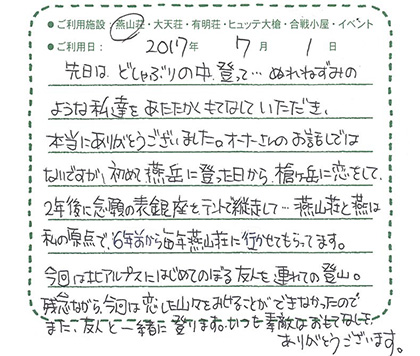 ●ご利用施設 燕山荘・大天荘・有明荘・ヒュッテ大槍・合戦小屋・イベント
●ご利用日： 2017年 7月 1日
先日は、どしゃぶりの中、登って…ぬれねずみの
ような私達をあたたかくもてなしていただき、
本当にありがとうございました。オーナーさんのお話しでは
ないですが、初めて燕岳に登った日から、槍ヶ岳に恋をして、
2年後に念願の表銀座をテントで縦走して…燕山荘と燕は
私の原点で、6年前から毎年燕山荘に行かせてもらってます。
今回は北アルプスにはじめてのぼる友人を連れての登山。
残念ながら、今回は恋した山々をみせることができなかったので
また、友人と一緒に登ります。いつも素敵なおもてなしを、
ありがとうございます。